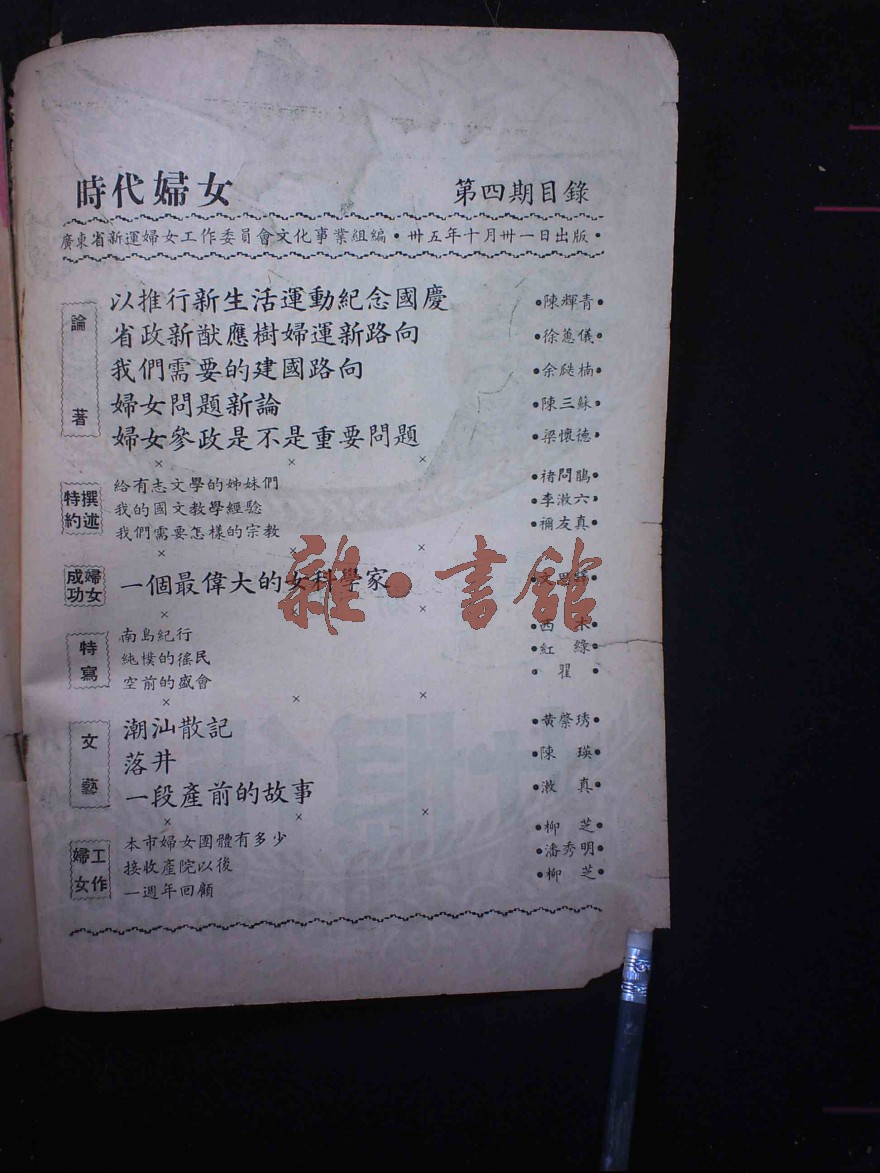 時代婦女 第四期目錄
廣東省新運婦女工作委員會文化事業組編・卅五年十月卅一日出版・
論著
以推行新生活運動紀念國慶 •陳輝青•
省政新猷應樹婦運新路向 •徐蕙儀•
我們需要的建國路向 •余 楠•
婦女問題新論 •陳三蘇•
婦女參政是不是重要問題 •梁懷德•
× × ×
特約撰述
給有志文學的姊妹們 •褚問鵑•
我的國文教學經驗 •李漱六•
我們需要怎樣的宗教 •禰友真•
× × ×
成功婦女
一個最偉大的女科學家
× × ×
特寫
南島紀行 •西 •
純樸的徭民 •紅綠•
空前的盛會 •翟•
× × ×
文藝
潮汕散記 •黃縈琇•
落井 •陳瑛•
一段產前的故事 •漱真•
× × ×
婦女工作
本市婦女團體有多少 •柳芝•
接收產院以後 •潘秀明•
一週年回顧 •柳芝•
雜・書館